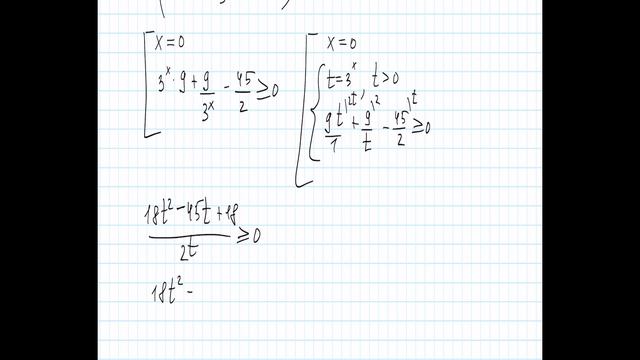 x=0
3^x · 9 + 9/3^x - 45/2 ≥ 0
x=0
t=3^x, t>0
9t^{|2t}/1 + 9^{|2}/t - 45^{|t}/2 ≥ 0
(18t² - 45t + 18)/2t ≥ 0
18t² -